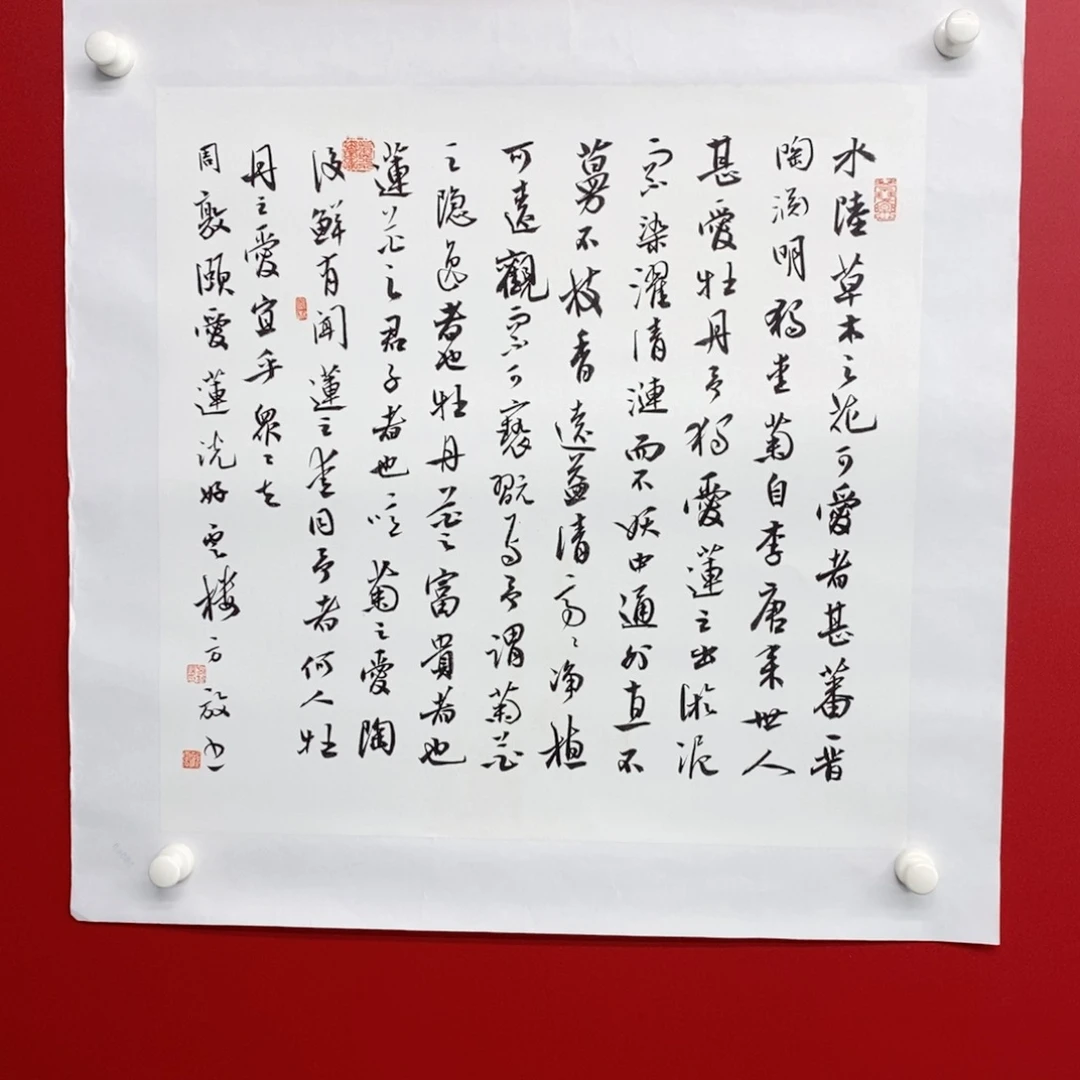 水陸草木之花可愛者甚蕃晋
陶渊明獨愛菊自李唐来世人
甚愛牡丹予獨愛蓮之出淤泥
而不染濯清漣而不妖中通外直不
蔓不枝香遠益清亭亭净植
可遠觀而不可褻翫焉予謂菊花
之隐逸者也牡丹花之富貴者也
蓮花之君子者也噫菊之愛陶
後鮮有闻蓮之愛同予者何人牡
丹之愛宜乎眾矣
周敦頤愛蓮说好雲楼方放书